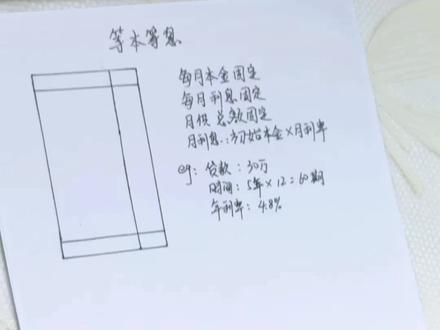 等本等息
每月本金固定
每月利息固定
月供总额固定
月利息：初始本金×月利率
eg：贷款：30万
时间：5年×12=60期
年利率：4.8%